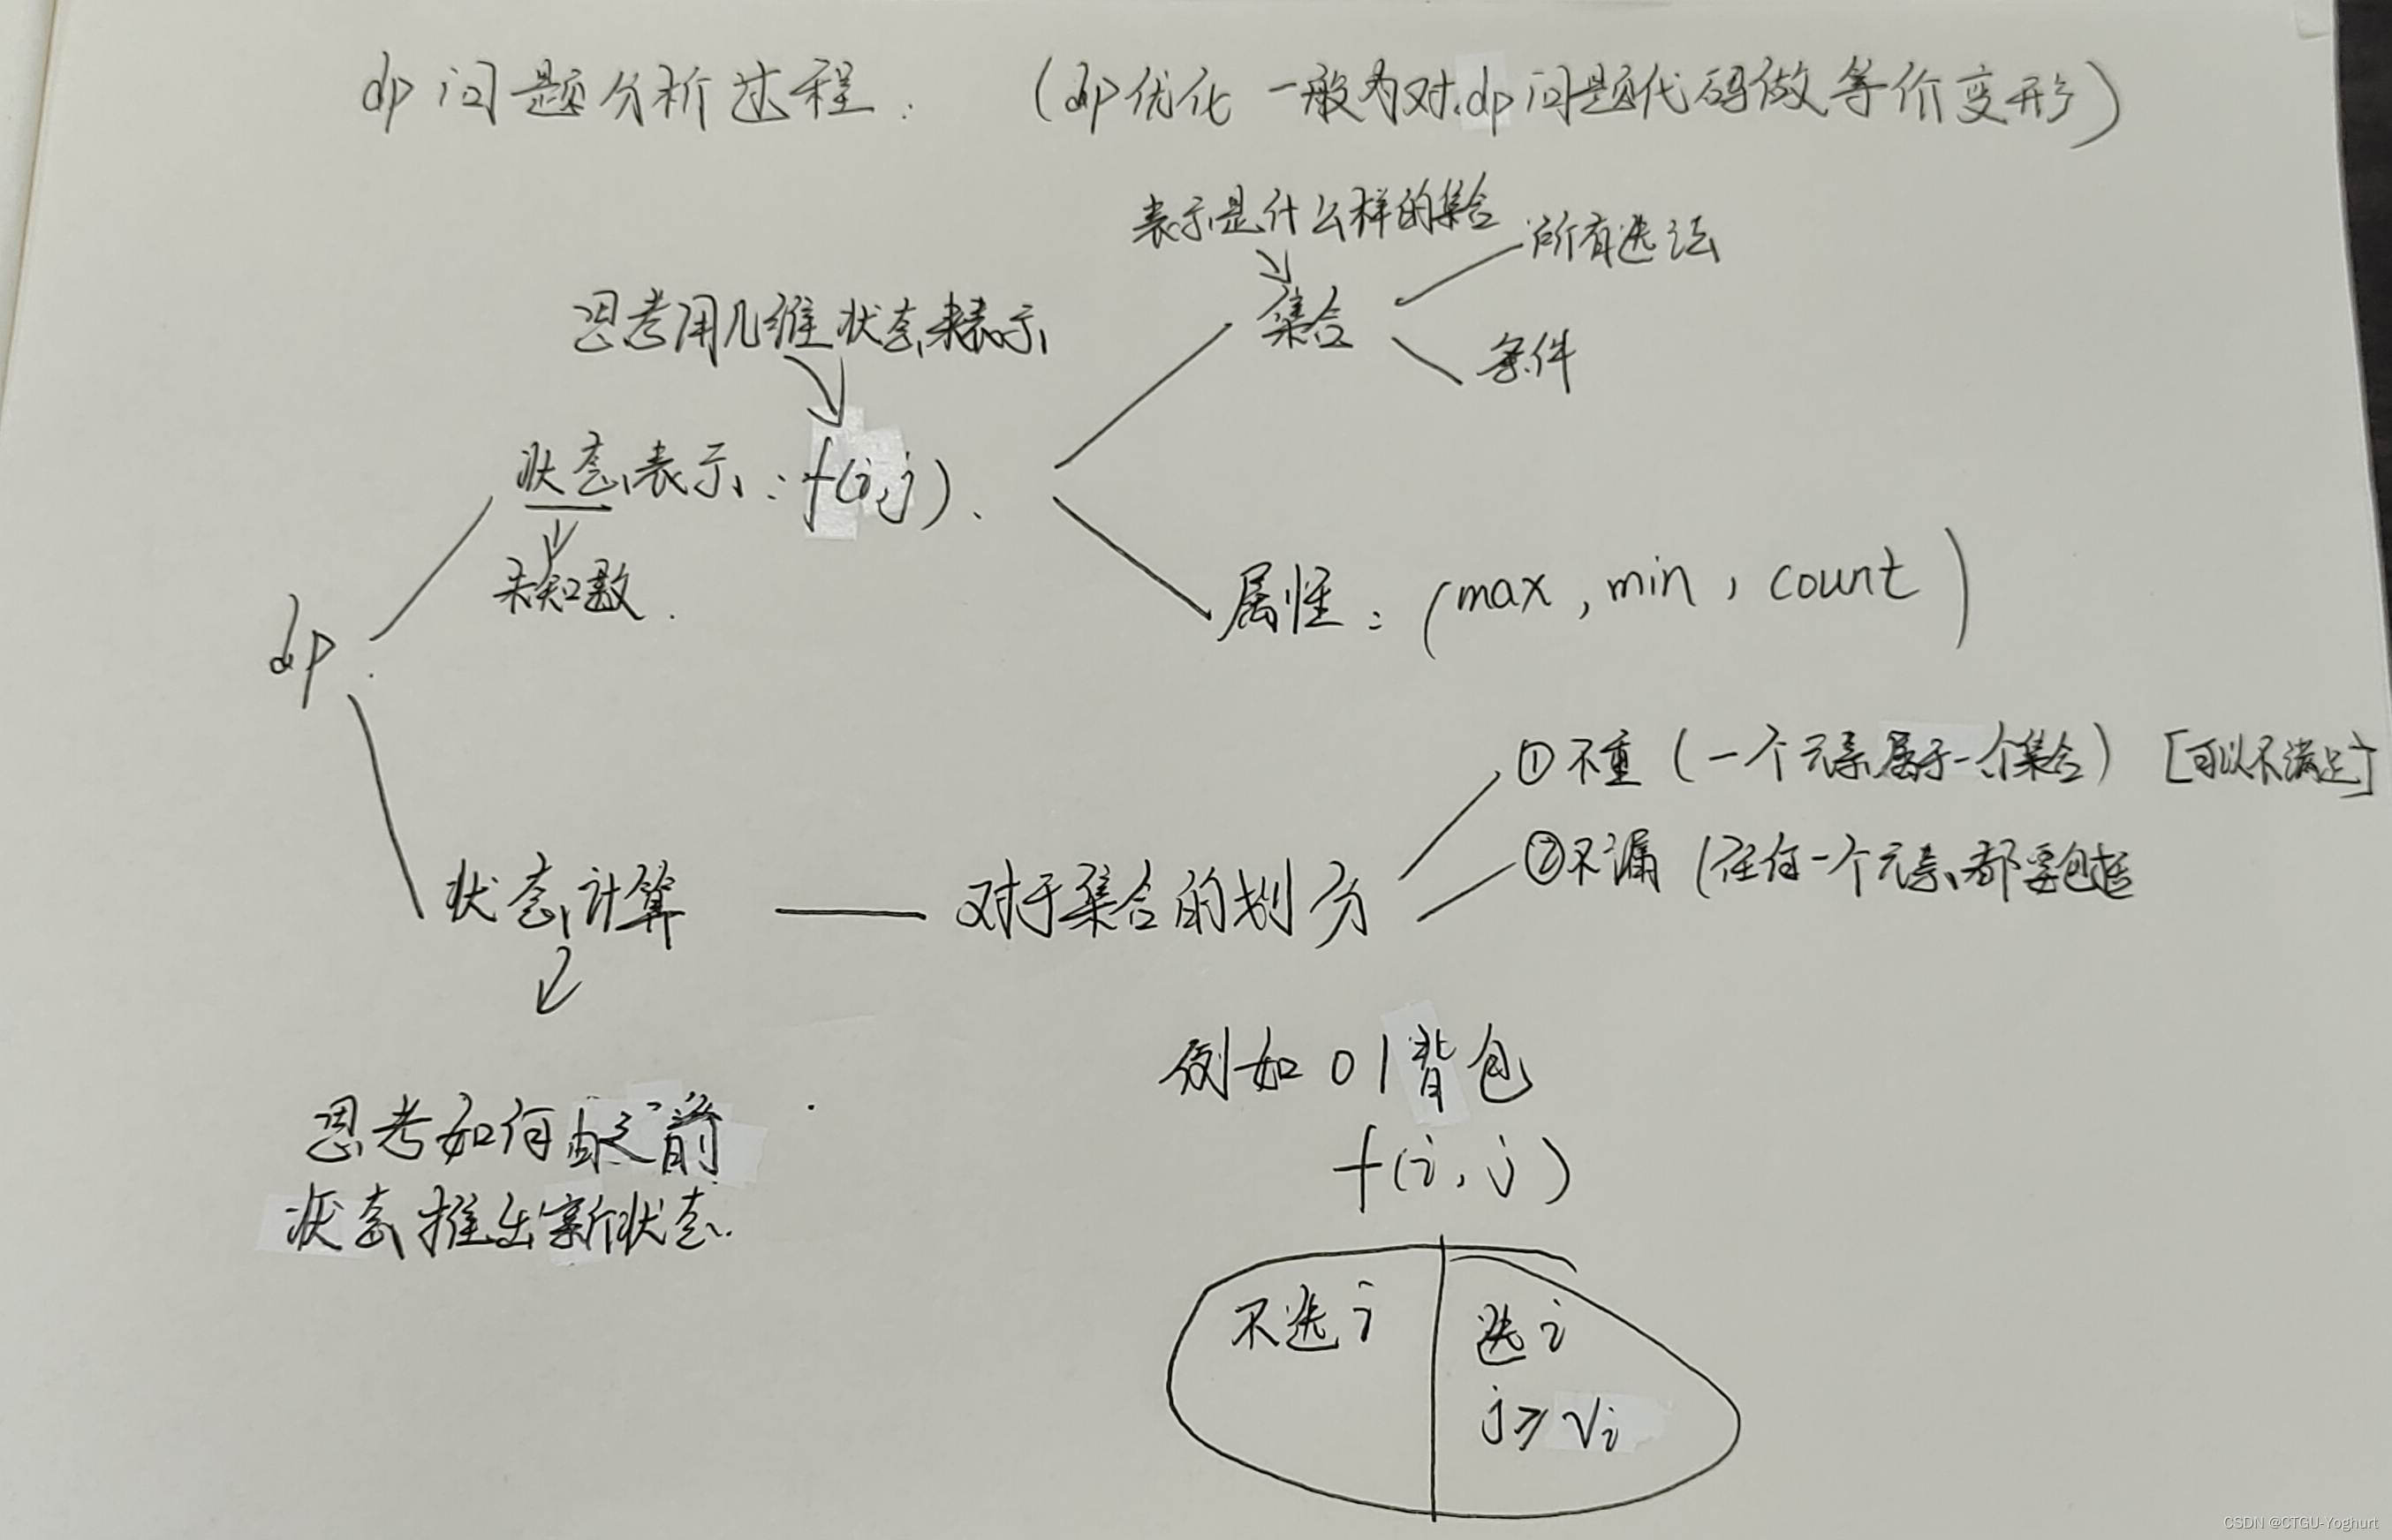 dp问题分析过程. (dp优化 一般为对dp问题代码做等价变形)
表示是什么样的集合
所有选法
思考用几维状态来表示
集合
条件
状态表示: f(i,j).
未知数.
属性: (max, min, count)
dp.
①不重 (一个元素属于一个集合) [可以不满足]
②不漏 (任何一个元素都要包括
状态计算 — 对于集合的划分
例如 01背包
思考如何由之前
f(i,j)
状态推出新状态.
不选i
选i
j≥Vi
CSDN @CTGU-Yoghurt